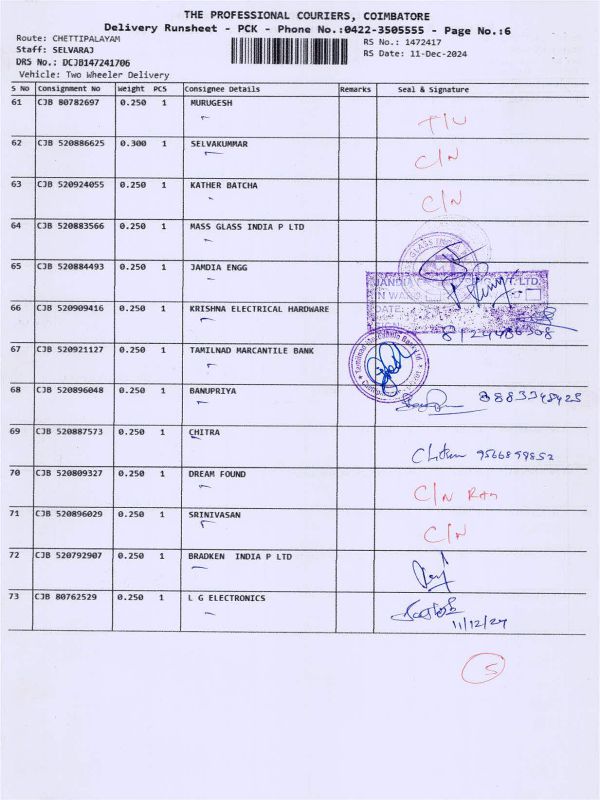 THE PROFESSIONAL COURIERS, COIMBATORE
Delivery Runsheet - PCK - Phone No.:0422-3505555 - Page No.:6
Route: CHETTIPALAYAM
RS No.: 1472417
Staff: SELVARAJ
RS Date: 11-Dec-2024
DRS No.: DCJB147241706
Vehicle: Two Wheeler Delivery
S No Consignment No Weight PCS Consignee Details Remarks Seal & Signature
61 CJB 80782697 0.250 1 MURUGESH
T/U
62 CJB 520886625 0.300 1 SELVAKUMMAR
C/N
63 CJB 520924055 0.250 1 KATHER BATCHA
C/N
64 CJB 520883566 0.250 1 MASS GLASS INDIA P LTD
65 CJB 520884493 0.250 1 JAMDIA ENGG
JANDIA PVT. LTD.
DATE:
66 CJB 520909416 0.250 1 KRISHNA ELECTRICAL HARDWARE
67 CJB 520921127 0.250 1 TAMILNAD MARCANTILE BANK
68 CJB 520896048 0.250 1 BANUPRIYA
69 CJB 520887573 0.250 1 CHITRA
70 CJB 520809327 0.250 1 DREAM FOUND
C/N
71 CJB 520896029 0.250 1 SRINIVASAN
C/N
72 CJB 520792907 0.250 1 BRADKEN INDIA P LTD
73 CJB 80762529 0.250 1 L G ELECTRONICS
11/12/24
5